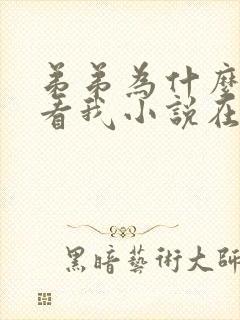 弟弟為什麼
看我小說在
黑暗藝術大師